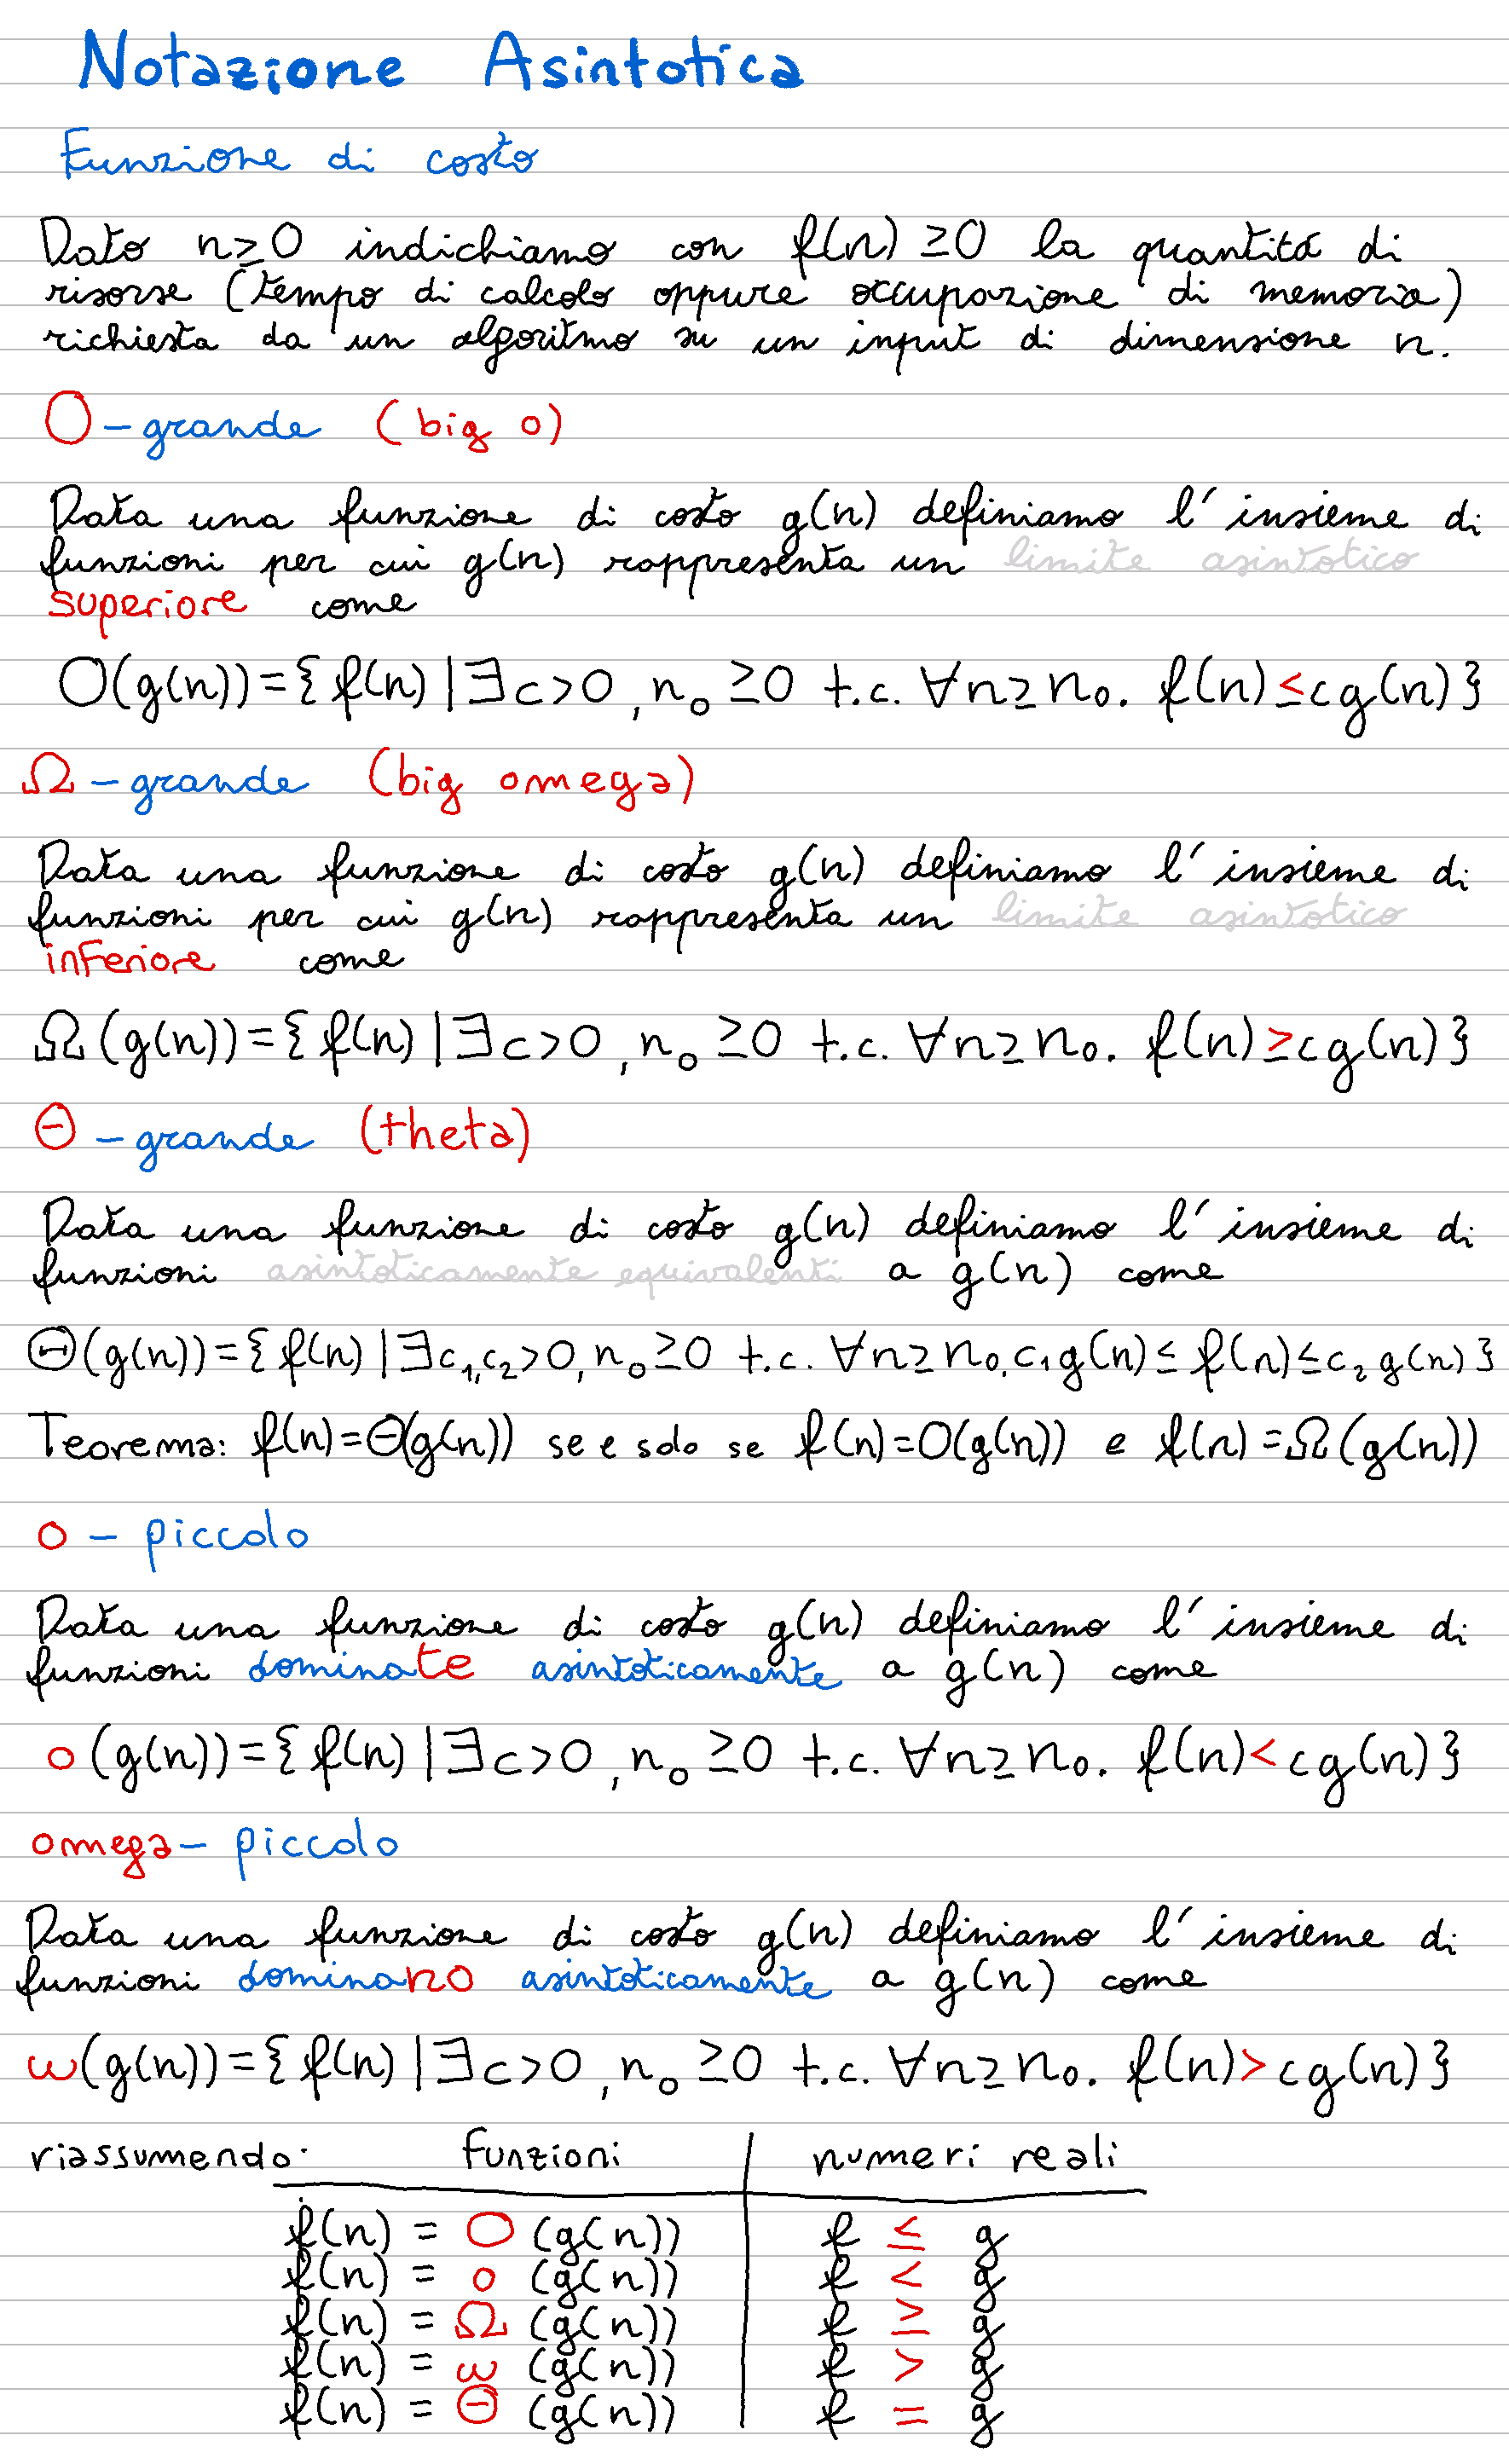 Notazione Asintotica
Funzione di costo
Dato n≥0 indichiamo con f(n) ≥0 la quantitá di
risorse (tempo di calcolo oppure occupazione di memoria)
richiesta da un algoritmo su un input di dimensione n.
O-grande (big o)
Data una funzione di costo g(n) definiamo l'insieme di
funzioni per cui g(n) rappresenta un limite asintotico
superiore come
O(g(n))={f(n)|∃c>0,n₀≥0 t.c. ∀n≥n₀. f(n)≤cg(n)}
Ω-grande (big omega)
Data una funzione di costo g(n) definiamo l'insieme di
funzioni per cui g(n) rappresenta un limite asintotico
inferiore come
Ω(g(n))={f(n)|∃c>0,n₀≥0 t.c. ∀n≥n₀. f(n)≥cg(n)}
Θ-grande (theta)
Data una funzione di costo g(n) definiamo l'insieme di
funzioni asintoticamente equivalenti a g(n) come
Θ(g(n))={f(n)|∃c₁,c₂>0,n₀≥0 t.c. ∀n≥n₀.c₁g(n)≤f(n)≤c₂g(n)}
Teorema: f(n)=Θ(g(n)) se e solo se f(n)=O(g(n)) e f(n)=Ω(g(n))
o - piccolo
Data una funzione di costo g(n) definiamo l'insieme di
funzioni dominate asintoticamente a g(n) come
o(g(n))={f(n)|∃c>0,n₀≥0 t.c. ∀n≥n₀. f(n)<cg(n)}
omega- piccolo
Data una funzione di costo g(n) definiamo l'insieme di
funzioni dominano asintoticamente a g(n) come
ω(g(n))={f(n)|∃c>0,n₀≥0 t.c. ∀n≥n₀. f(n)>cg(n)}
riassumendo: funzioni numeri reali
f(n) = O (g(n)) f ≤ g
f(n) = o (g(n)) f < g
f(n) = Ω (g(n)) f ≥ g
f(n) = ω (g(n)) f > g
f(n) = Θ (g(n)) f = g